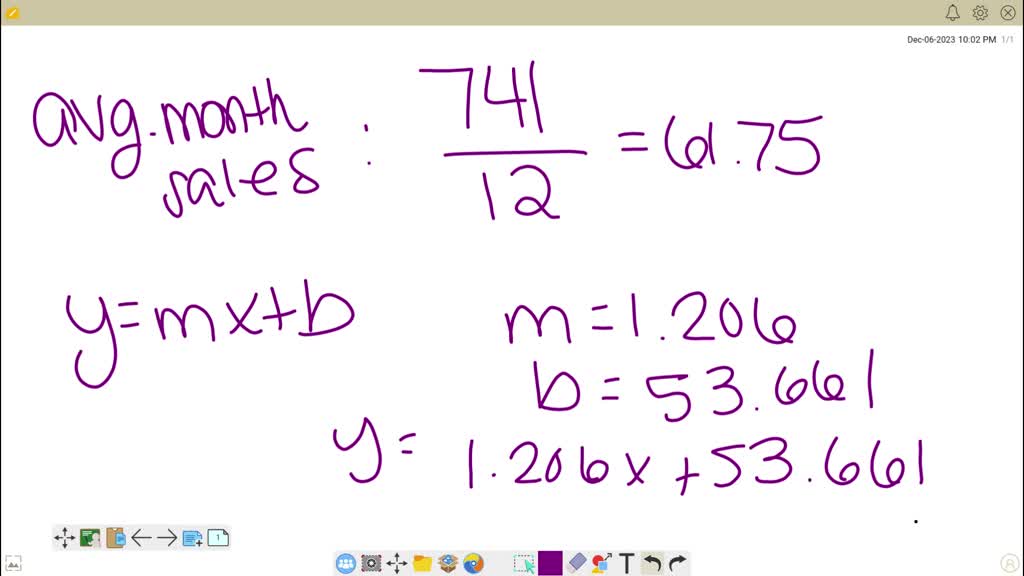 Dec-06-2023 10:02 PM 1/1
avg. month sales : 741/12 = 61.75
y=mx+b
m=1.206
b=53.661
y= 1.206x+53.661
1
T